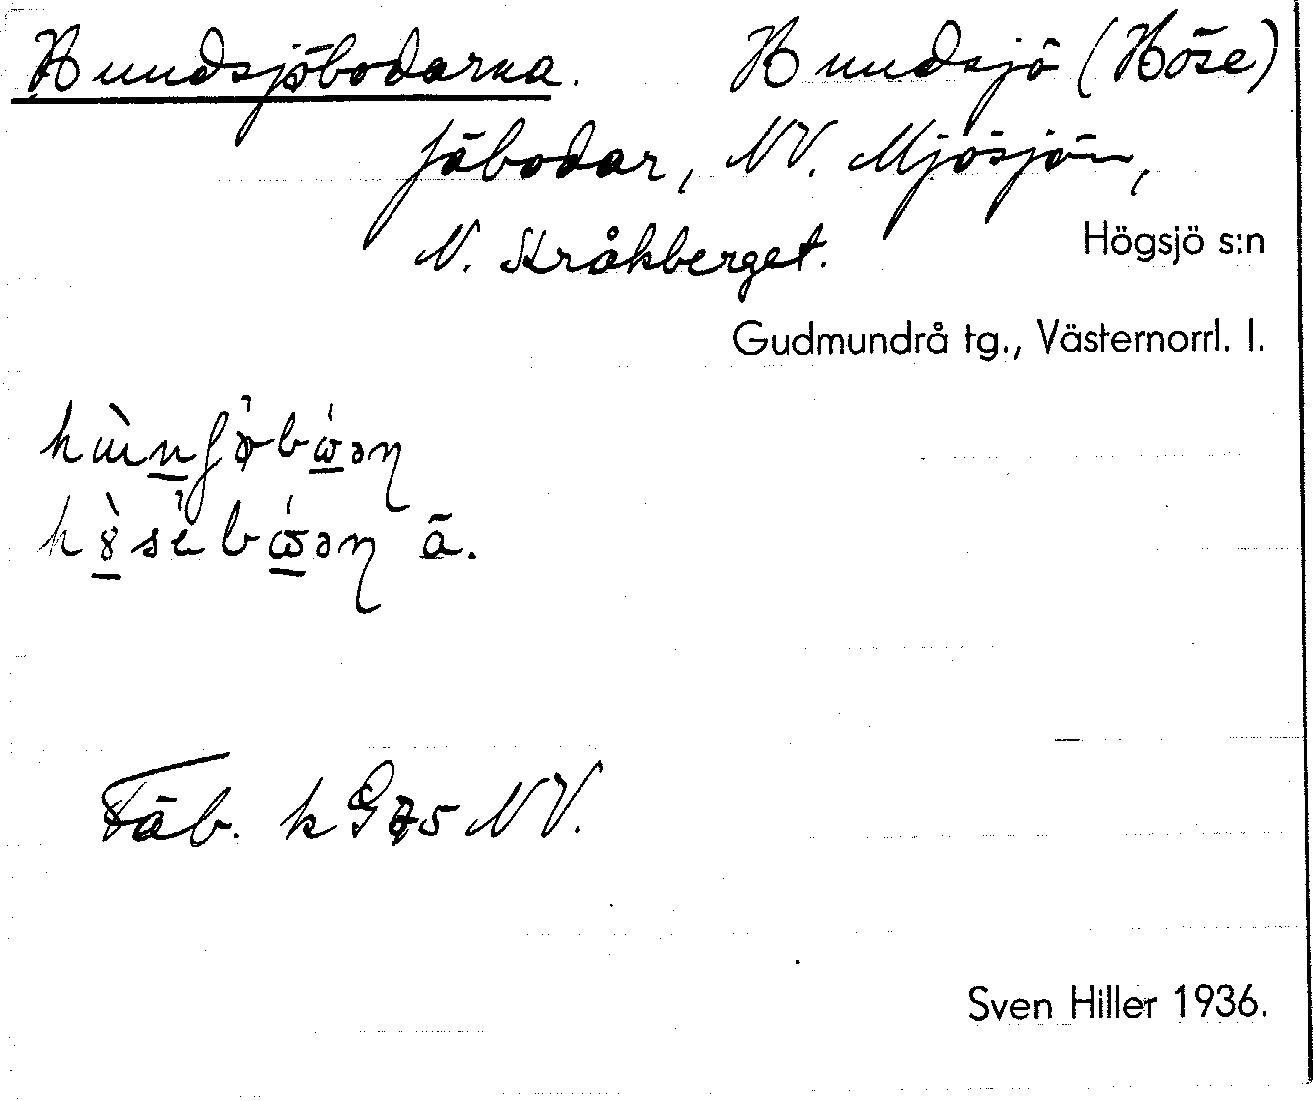 Hundsjöbodarna. Hundsjö (Höse)
fäbodar, NV. Mjösjön,
N. Kråkberget.
Högsjö s:n
Gudmundrå tg., Västernorrl. l.
ā.
Fäb. k G75 NV.
Sven Hiller 1936.